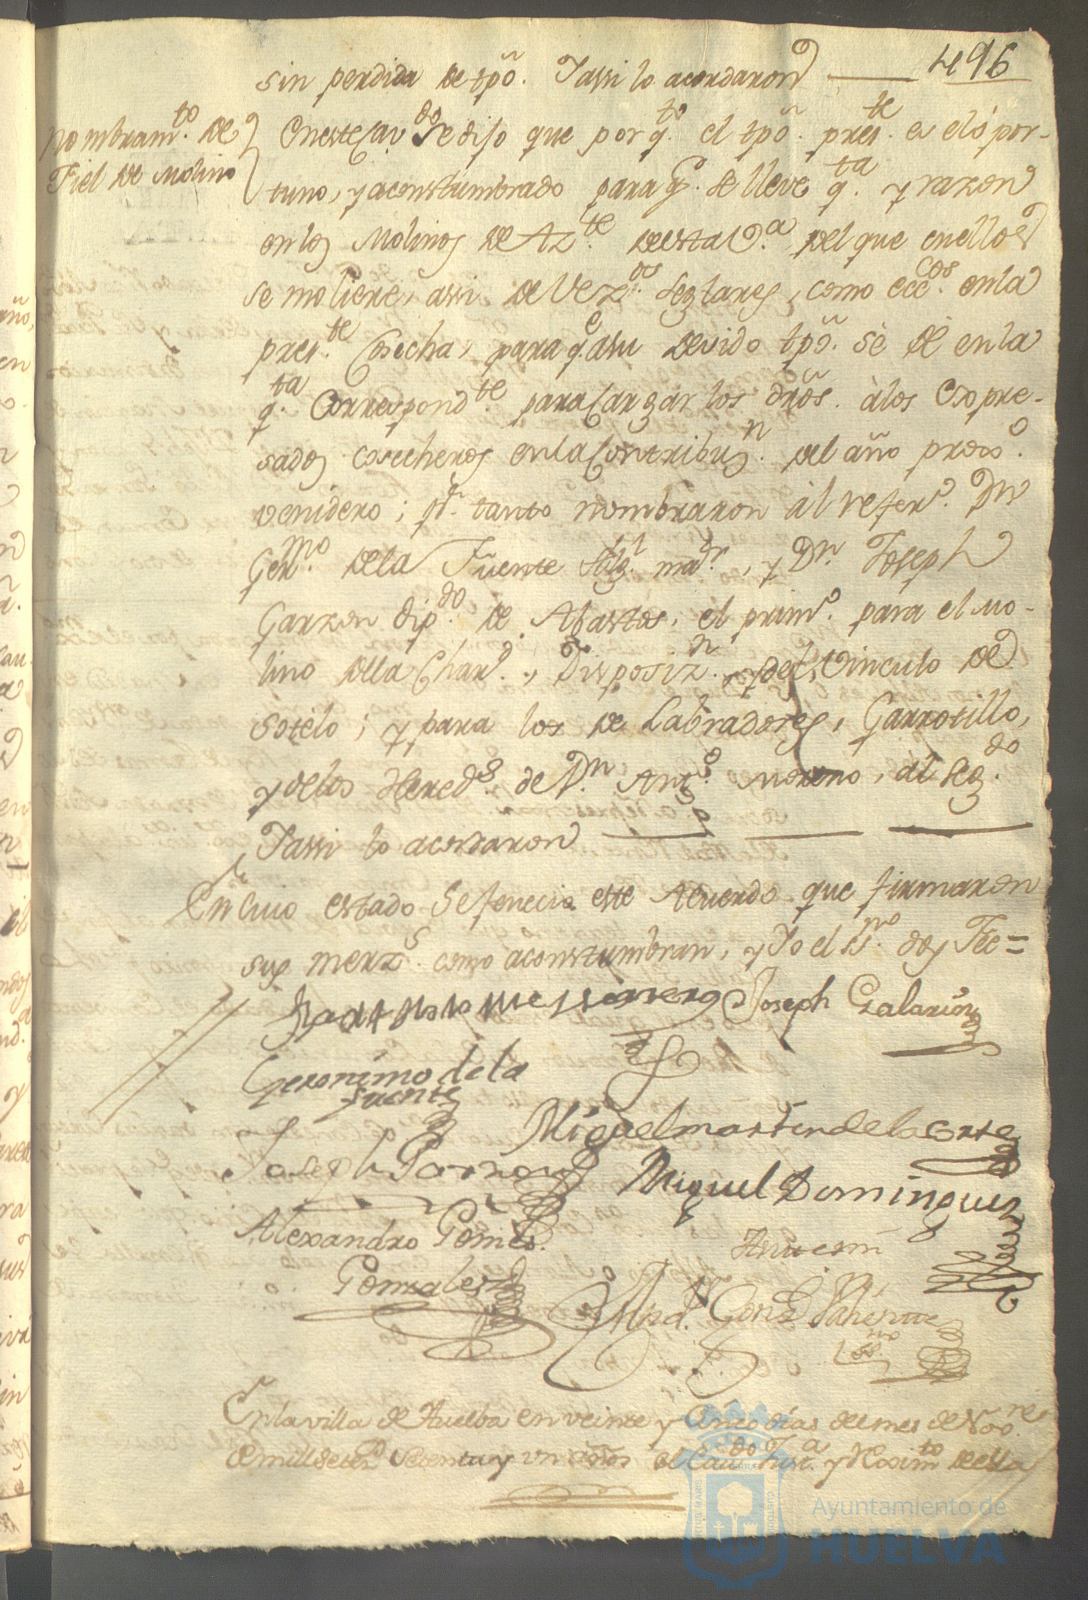 496
sin perdida de tpõ. Yassi lo acordaron
Nombram.to de
Fiel de Molino
En este Cav.do Se dijo que por q.to el tpõ. pres.te es el ópor-
tuno, y aconstumbrado para q.e se lleve q.ta y razon
en los Molinos de Az.te de esta V.a del que en ellos
se moliere, assi de Vez.os Seglares, como ecc.cos en la
pres.te Cosecha, para q.e a su devido tpõ. se dé en la
q.ta Correspond.te para Cargar los drõs. à los Expre-
sados cosecheros en la Contribuz.n del año proxº.
venidero; p.r tanto nombraron àl refer.º D.n
Ger.mo de la Fuente Alg.l ma.or, y D.n Joseph
Garzon dip.do de Abastos, el prim.º para el Mo-
lino de la Char.d, Disposiz.n, y del Vinculo de
Sotelo; y para los de Labradores, Garrotillo,
y de los Hered.s de D.n Ant.º Moreno, àl Seg.do
Yassi lo acordaron
En cuio estado Se fenecio este Acuerdo que firmaron
sus merz.s como aconstumbran, y Yo el ss.no doy Fee=
Joseph Galarión
Geronimo de la
Fuente
Miguel martin de la Corte
Joseph Garzon
Miguel Dominguez
Alexandro Gómes.
Gonzales
Ante mi
Gonz
ss.no
En la villa de Huelba en veinte y Cinco dias del mes de Nov.re
de mill Setez.s Setenta y un años el Cav.do Just.a y Rexim.to de ella
Ayuntamiento de
HUELVA